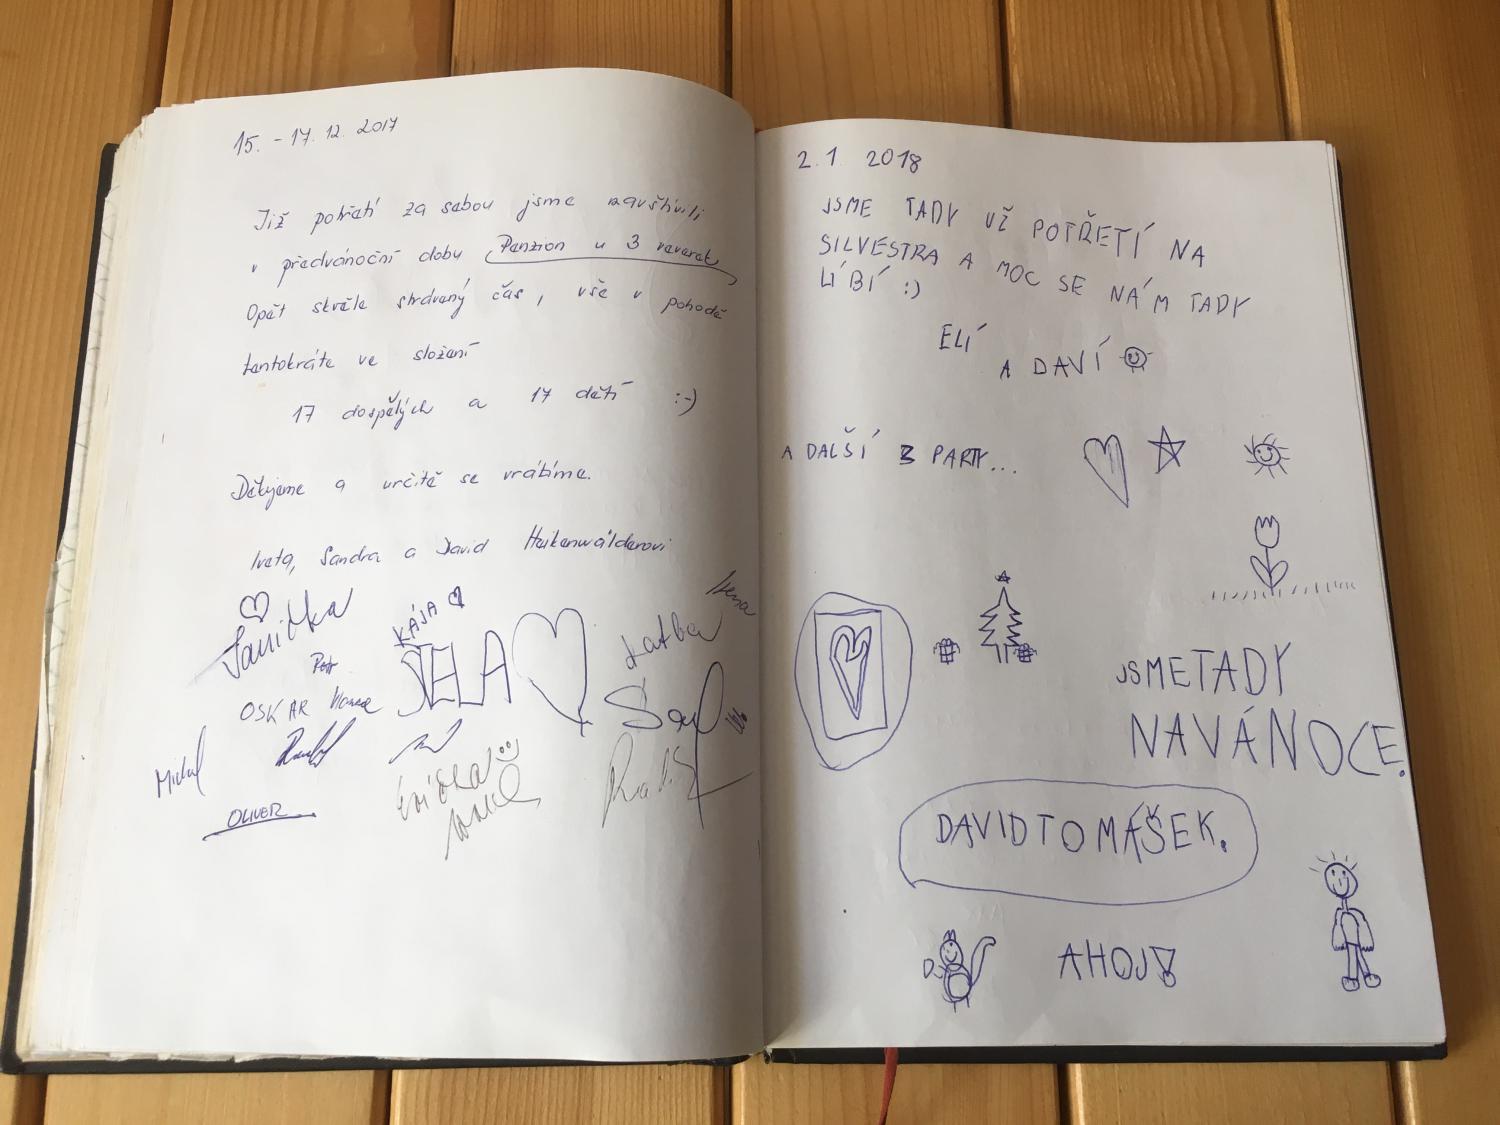 15. - 17. 12. 2017
Již potřetí za sebou jsme navštívili
v předvánoční dobu Penzion u 3 veverek
Opět skvěle strávený čas, vše v pohodě
tentokráte ve složení
17 dospělých a 17 dětí :-)
Děkujeme a určitě se vrátíme.
Iveta, Sandra a David
Janička
KÁJA
Irena
Petr
STELA
Katka
OSKAR
Michal
OLIVER
2. 1. 2018
JSME TADY UŽ POTŘETÍ NA
SILVESTRA A MOC SE NÁM TADY
LÍBÍ :)
ELÍ
A DAVÍ
A DALŠÍ 3 PARTY...
JSMETADY
NAVÁNOCE.
DAVIDTOMÁŠEK.
AHOJ!